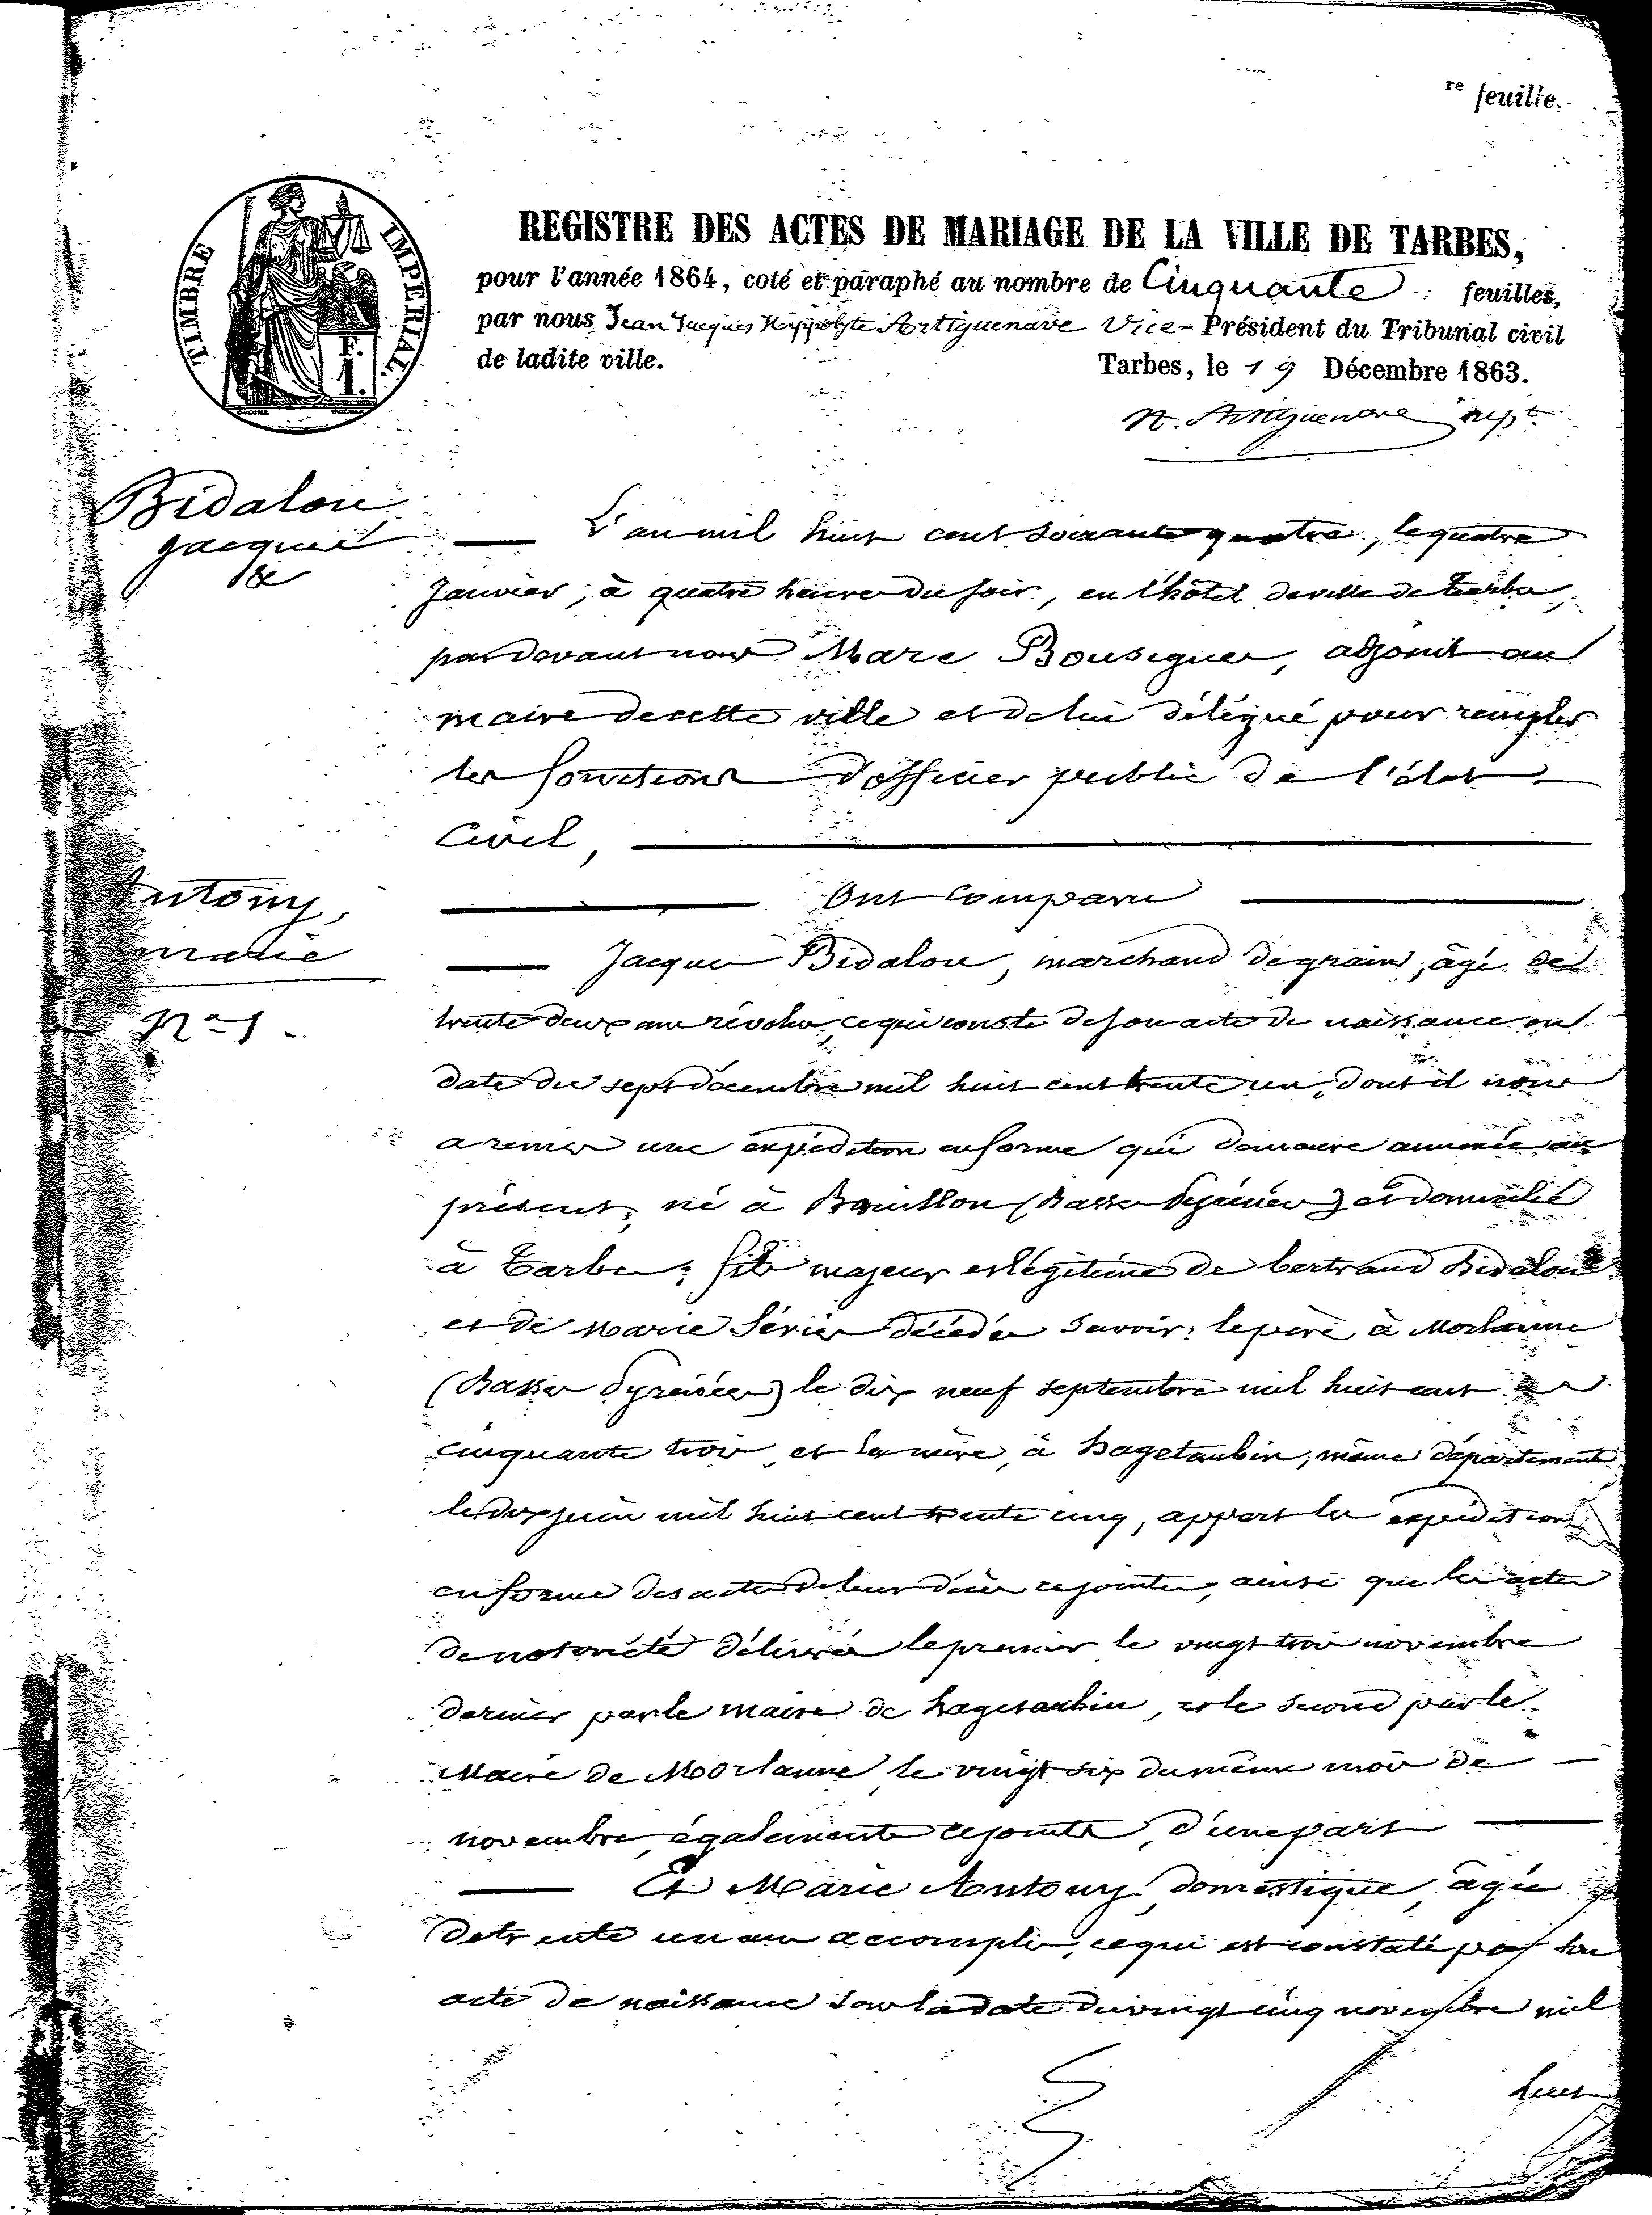 re feuille.
TIMBRE IMPERIAL.
REGISTRE DES ACTES DE MARIAGE DE LA VILLE DE TARBES,
pour l'année 1864, coté et paraphé au nombre de Cinquante feuilles,
par nous Jean Jacques Hippolyte Artiguenave Vice-Président du Tribunal civil
de ladite ville. Tarbes, le 19 Décembre 1863.
H. Artiguenave
Bidalou
Jacques
&
L'an mil huit cent soixante quatre, le quatre
Janvier, à quatre heures du soir, en l'hôtel de ville de Tarbes,
par devant nous Marc Bousigues, adjoint au
maire de cette ville et de lui délégué pour remplir
les fonctions d'officier public de l'état
Civil,
Antony,
marie
No 1.
Ont Comparu
Jacques Bidalou, marchand de grains, âgé de
trente deux ans révolus, ce qui conste de son acte de naissance en
date du sept décembre mil huit cent trente un, dont il nous
a remis une expédition en forme qui demeure annexée au
présent, né à Bouillon (Basses Pyrénées) et domicilié
à Tarbes; fils majeur et légitime de bertrand Bidalou
et de Marie Sériés décédés savoir: le père à Morlanne
(Basses Pyrénées) le dix neuf septembre mil huit cent
cinquante trois, et la mère, à hagetaubin, même département
le dix juin mil huit cent trente cinq, appert les expéditions
en forme des actes de leur décès ci jointes, ainsi que les actes
de notoriété délivrés le premier le vingt trois novembre
dernier par le maire de hagetaubin, et le second par le
Maire de Morlanne, le vingt six du même mois de
novembre, également ci joints, d'une part
Et Marie Antony, domestique, âgée
de trente un ans accomplis, ce qui est constaté par son
acte de naissance sous la date du vingt cinq novembre mil
huit